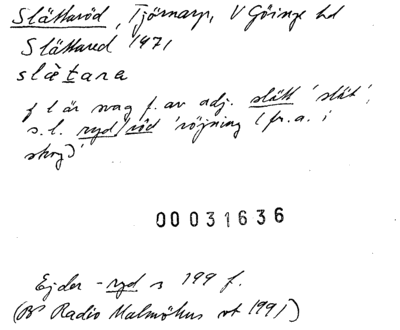 Slättaröd, Tjörnarp, V Göinge hd
Slättared 1471
slätara
f l är svag f. av adj. slätt 'slät',
s. l. ryd/röd 'röjning (fr. a. i
skog)'
00031636
Ejder -ryd s 199 f.
(BP Radio Malmöhus vt 1991)